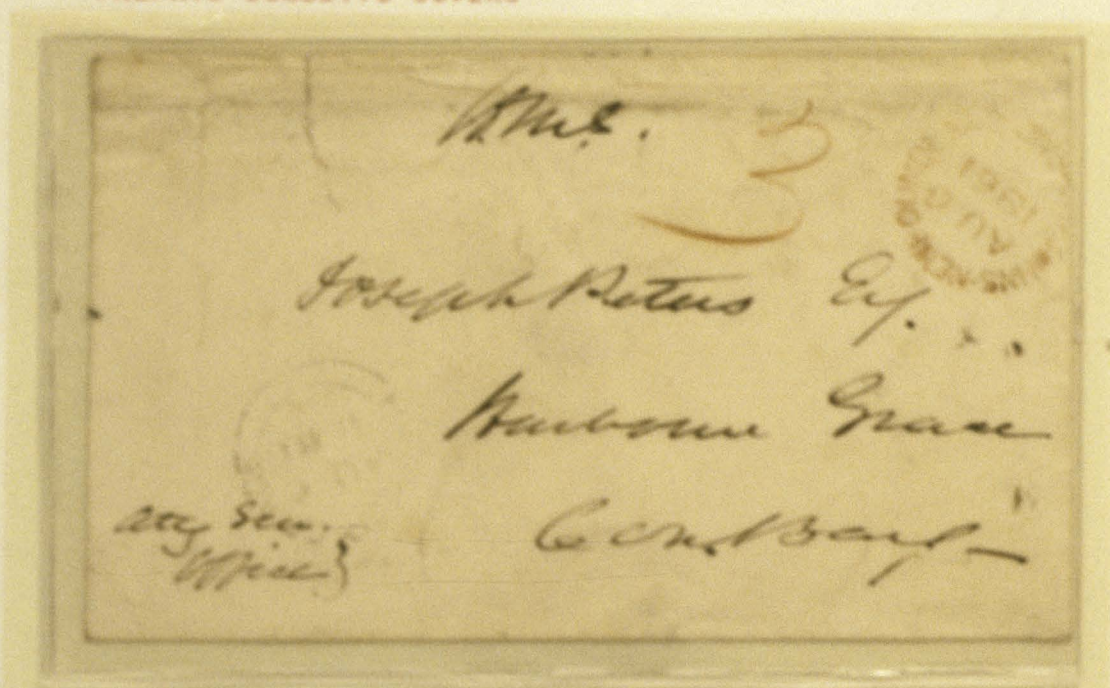 O.H.M.S.
3
AU 1861
Joseph Peters Esq.
Harbour Grace
Con. Bay
Atty Gen.
Office